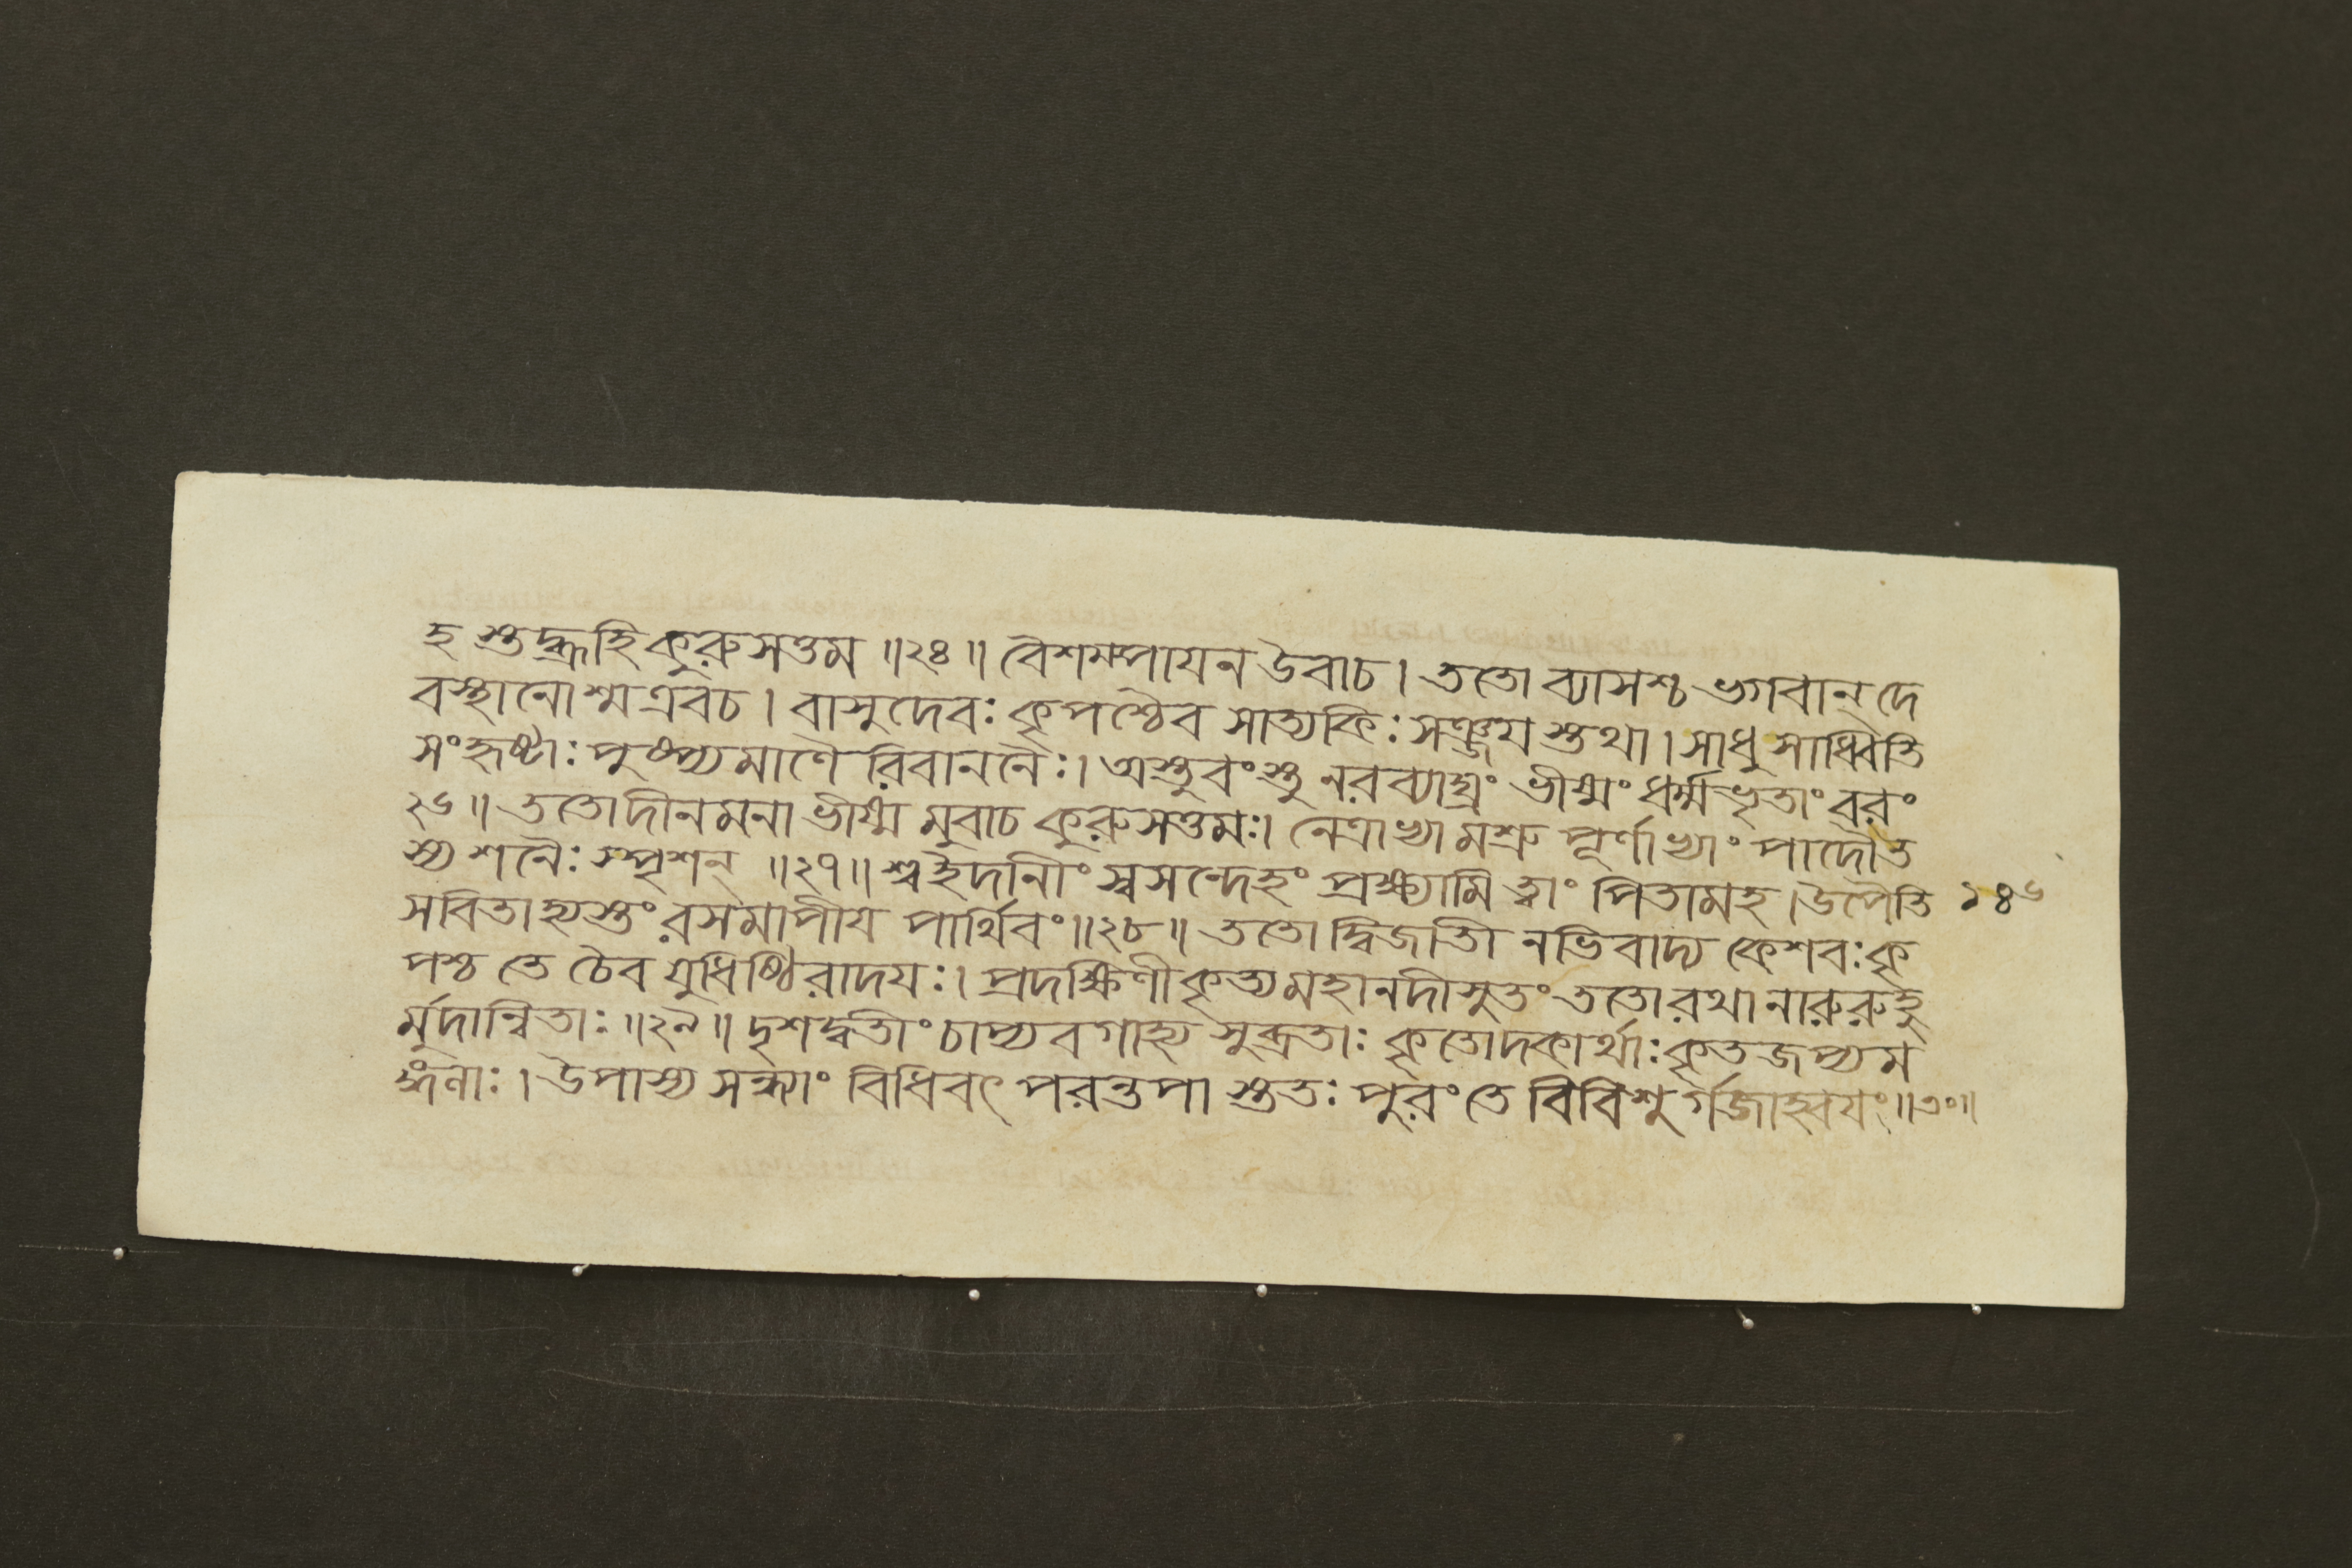 হ স্তদ্ব্রূহি কুরুসত্তম ॥২৪॥ বৈশম্পায়ন উবাচ। ততো ব্যাসশ্চ ভগবান্ দে
বস্থানোশ্ম এবচ। বাসুদেবঃ কৃপশ্চৈব সাত্যকিঃ সঞ্জয় স্তথা। সাধু সাধ্বিতি
সংহৃষ্টাঃ পুষ্প্যমাণৈ রিবাননৈঃ। অস্তুবংস্তু নরব্যাঘ্রং ভীষ্মং ধর্ম্মভৃতাং বরং
২৬॥ ততোদীনমনা ভীষ্ম মুবাচ কুরুসত্তমঃ। নেত্রাভ্যামশ্রু পূর্ণাভ্যাং পাদৌত
স্য শনৈঃ স্পৃশন্ ॥২৭॥ শ্বইদানীং স্বসন্দেহং প্রক্ষ্যামি ত্বাং পিতামহ। উপৈতি ১৪৬
সবিতাহ্যস্তং রসমাপীয় পার্থিবং॥২৮॥ ততো দ্বিজাতী নভিবাদ্য কেশবঃ কৃ
পশ্চ তে চৈব যুধিষ্ঠিরাদয়ঃ। প্রদক্ষিণীকৃত্যমহানদীসুতং ততোরথা নারুরুহু
র্মুদান্বিতাঃ ॥২৯॥ দৃশদ্বতীং চাপ্য বগাহ্য সুব্রতাঃ কৃতোদকার্থাঃ কৃতজপ্যম
ঙ্গনাঃ। উপাস্য সন্ধ্যাং বিধিবৎ পরন্তপা স্ততঃ পুরং তে বিবিশু র্গজাহ্বয়ং॥৩০॥